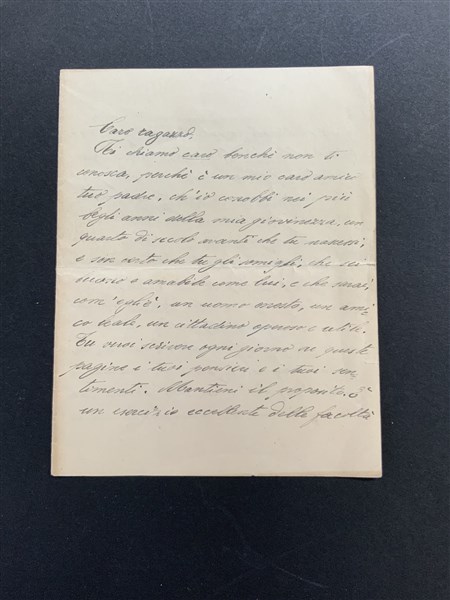 Caro ragazzo,
Ti chiamo caro benchè non ti
conosca, perchè è un mio caro amico
tuo padre, ch'io conobbi nei più
begli anni della mia giovinezza, un
quarto di secolo avanti che tu nascessi;
e son certo che tu gli somigli, che sei
sincero e amabile come lui, e che sarai,
com'egli è, un uomo onesto, un ami-
co leale, un cittadino operoso e utile.
Tu vuoi scrivere ogni giorno su queste
pagine i tuoi pensieri e i tuoi sen-
timenti. Mantieni il proposito. È
un esercizio eccellente delle facoltà